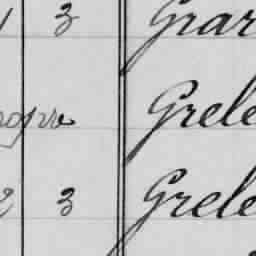 1 3 Grar
Grele
2 3 Grele